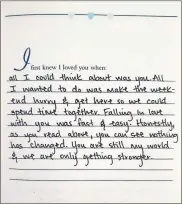 I first knew I loved you when:
all I could think about was you. All
I wanted to do was make the week-
end hurry & get here so we could
spend time together. Falling in love
with you was fast & easy. Honestly,
as you read above, you can see nothing
has changed. You are still my world
& we are only getting stronger.